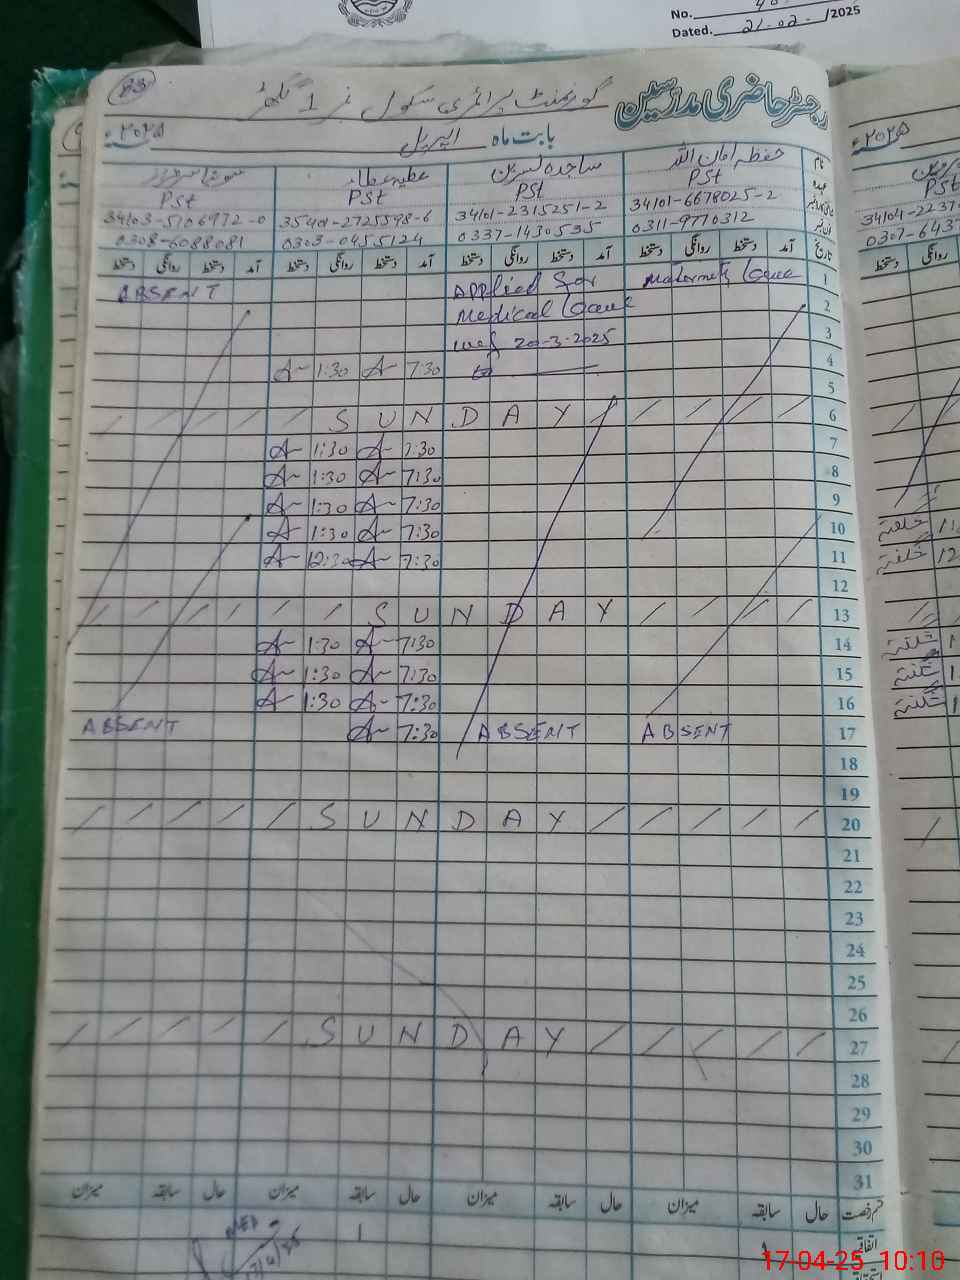 No.
Dated. 21-02- /2025
B3
گورنمنٹ پرائمری سکول نمبر 1 گکھڑ
رجسٹر حاضری مدرسین
بابت ماہ اپریل
۲۰۲۵ء
نام حفظہ امان اللہ ساجدہ نسرین عطیہ عطاء
عہدہ PSt PSt PSt PSt
34101-6678025-2 34101-2315251-2 35401-2725598-6 34103-5106972-0
0311-9770312 0337-1430535 0303-0455124 0308-6088081
تاریخ آمد دستخط روانگی دستخط آمد دستخط روانگی دستخط آمد دستخط روانگی دستخط آمد دستخط روانگی دستخط
ABSENT Applied for Maternity Leave 1
Medical Leave 2
wef 20-3-2025 3
1:30 7:30 to 4
5
SUNDAY 6
1:30 7:30 7
1:30 7:30 8
1:30 7:30 9
1:30 7:30 10
12:30 7:30 11
12
SUNDAY 13
1:30 7:30 14
1:30 7:30 15
1:30 7:30 16
ABSENT 7:30 ABSENT ABSENT 17
18
19
SUNDAY 20
21
22
23
24
25
26
SUNDAY 27
28
29
30
31
قسم رخصت حال سابقہ میزان حال سابقہ میزان حال سابقہ میزان حال سابقہ میزان
اتفاقیہ
۲۰۲۵ء
PSt
دستخط روانگی
17-04-25 10:10